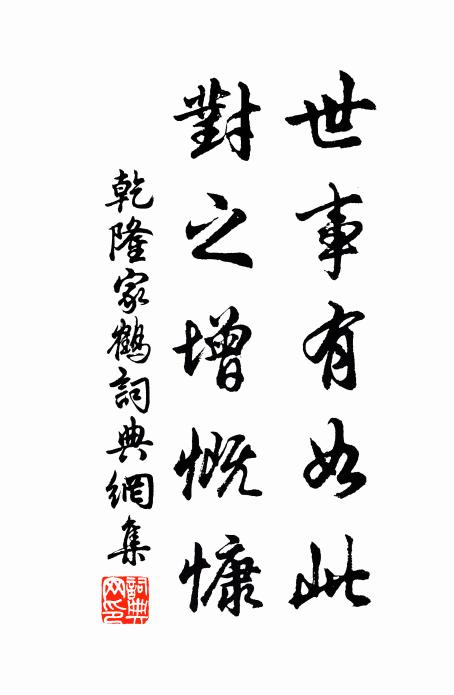 世事有如此
對之增慨慷
乾隆家鶴詞典網集
詞典网印